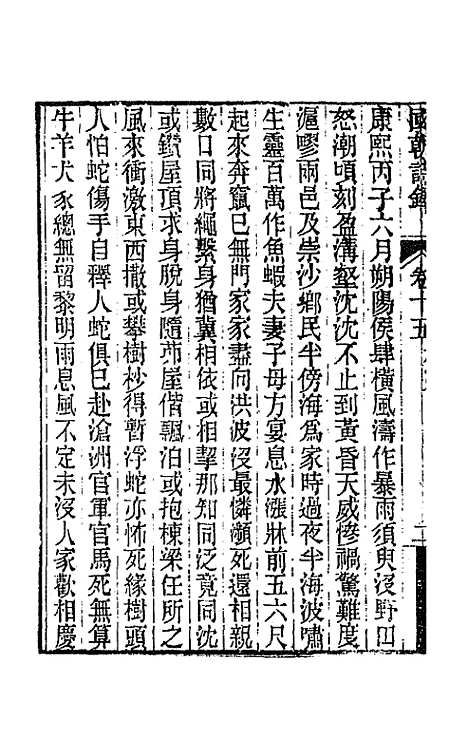 國朝詩鐸
卷十五
康熙丙子六月朔陽侯肆橫風濤作暴雨須臾沒野田
怒潮頃刻盈溝壑沈沈不止到黃昏天威慘禍驚難度
滬㵳雨邑及崇沙鄉民半傍海爲家時過夜半海波嘯
生靈百萬作魚蝦夫妻子母方宴息水漲牀前五六尺
起來奔竄已無門家家盡向洪波沒最憐瀕死還相親
數口同將繩繫身猶冀相依或相挈那知同泛竟同沈
或鑽屋頂求身脫身隨茆屋偕飄泊或抱棟梁任所之
風來衝激東西撒或攀樹杪得暫浮蛇亦怖死緣樹頭
人怕蛇傷手自釋人蛇俱已赴滄洲官軍官馬死無算
牛羊犬豕總無留黎明雨息風不定未沒人家歡相慶